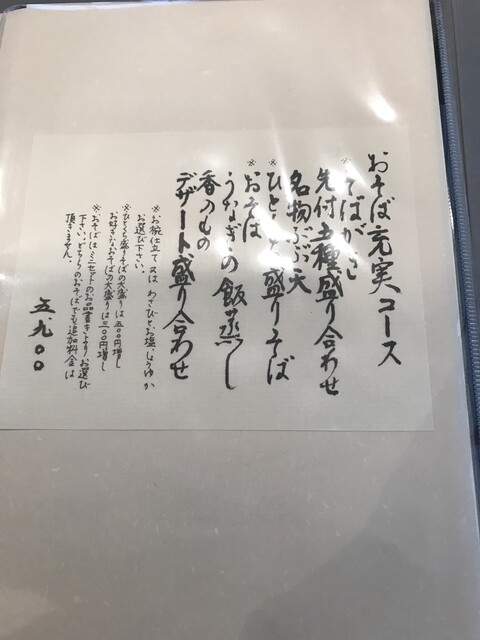 おそば充実コース
※そばがき
先付五種盛り合わせ
名物ぶぶ天
※ひとくち盛りそば
※おそば
うなぎの飯蒸し
香のもの
デザート盛り合わせ
※お椀仕立て又はわさびとお塩、しょうゆか
お選び下さい。
※ひとくち盛りそばの大盛りは五〇〇円増し
お好きなおそばの大盛りは三〇〇円増し
※おそばはミニセットのお品書きよりお選び
下さい。どちらのおそばでも追加料金は
頂きません。
五.九〇〇